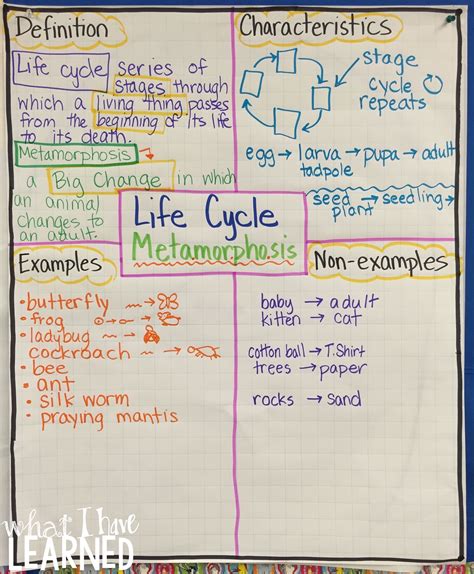 Definition
Life cycle series of
stages through
which a living thing passes
from the beginning of its life
to its death.
Metamorphosis →
a Big Change in which
an animal
changes to
an adult.
Characteristics
stage
cycle
repeats
egg → larva → pupa → adult
tadpole
seed → seedling →
plant
Life Cycle
Metamorphosis
Examples
• butterfly
• frog
• ladybug
cockroach
• bee
• ant
• silk worm
• praying mantis
Non-examples
baby → adult
kitten → cat
cotton ball → T.Shirt
trees → paper
rocks → sand
what I have
LEARNED